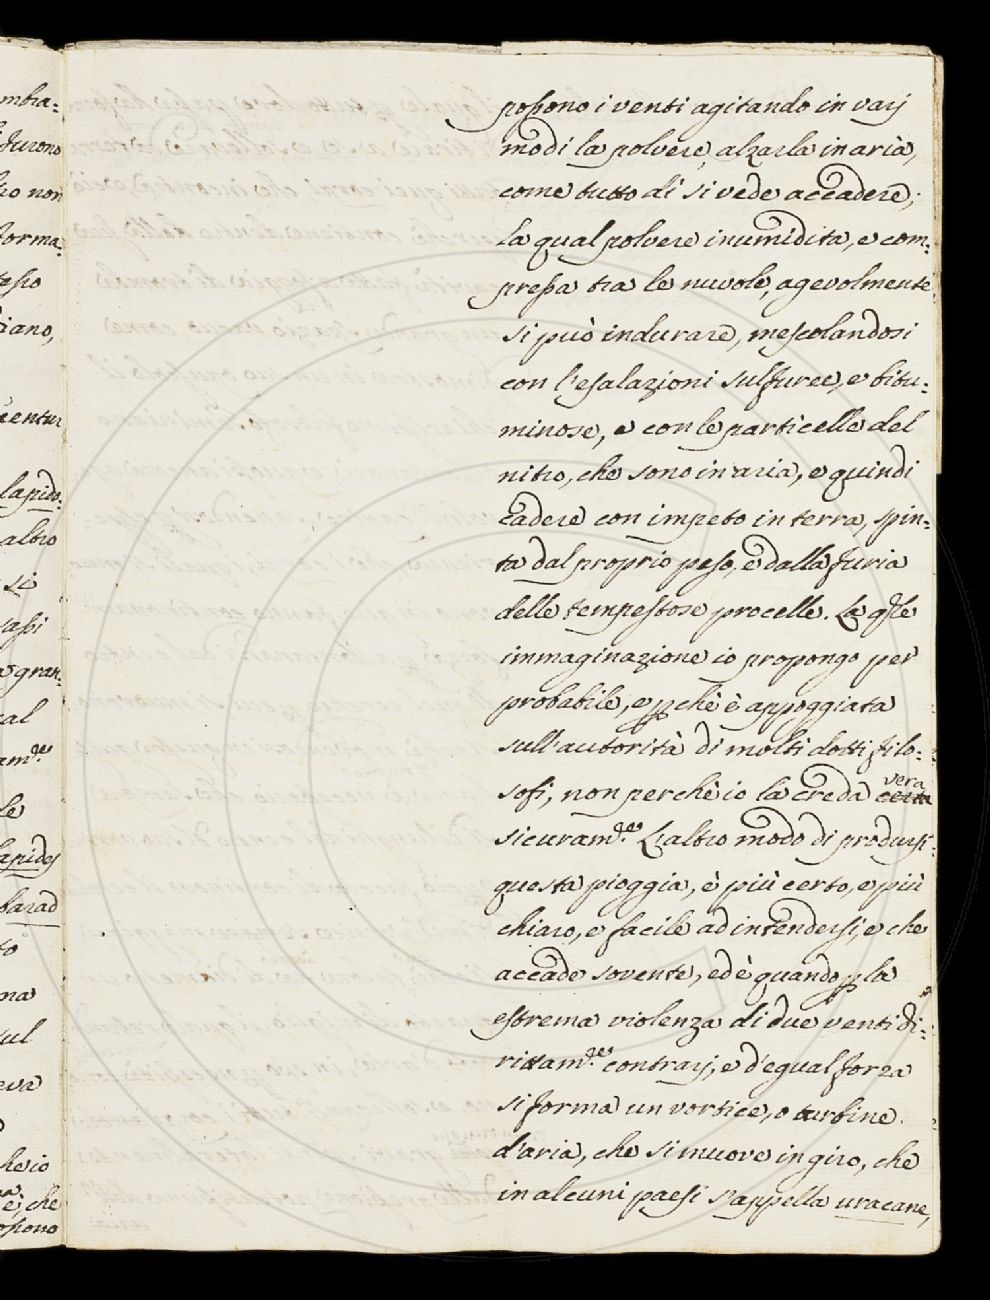 mbra:
furono
ro non
forma:
tesso
iano,
ventur
lapid:
altro
si
sassi
gran:
cal
am.te
le
lapides
barad
to
ma
sul
eva
che io
è, che
ossono
possono i venti agitando in varij
modi la polvere, alzarla in aria,
come tutto dì si vede accadere;
La qual polvere inumidita, e com:
pressa tra le nuvole, agevolmente
si può indurare, mescolandosi
con l'esalazioni sulfuree, e bitu:
minose, e con le particelle del
nitro, che sono in aria, e quindi
cadere con impeto in terra, spin:
ta dal proprio peso, e dalla furia
delle tempestose procelle. La qle
immaginazione io propongo per
probabile, e pchè è appoggiata
sull'autorità di molti dotti filo:
sofi, non perchè io la creda certa vera
sicuram.te L'altro modo di prodursi
questa pioggia, è più certo, e più
chiaro, e facile ad intendersi, e che
accade sovente, ed è quando p la
estrema violenza di due venti di:
rittam.te contrarj, e d'egual forza
si forma un vortice, o turbine
d'aria, che si muove in giro, che
in alcuni paesi s'appella uracane,